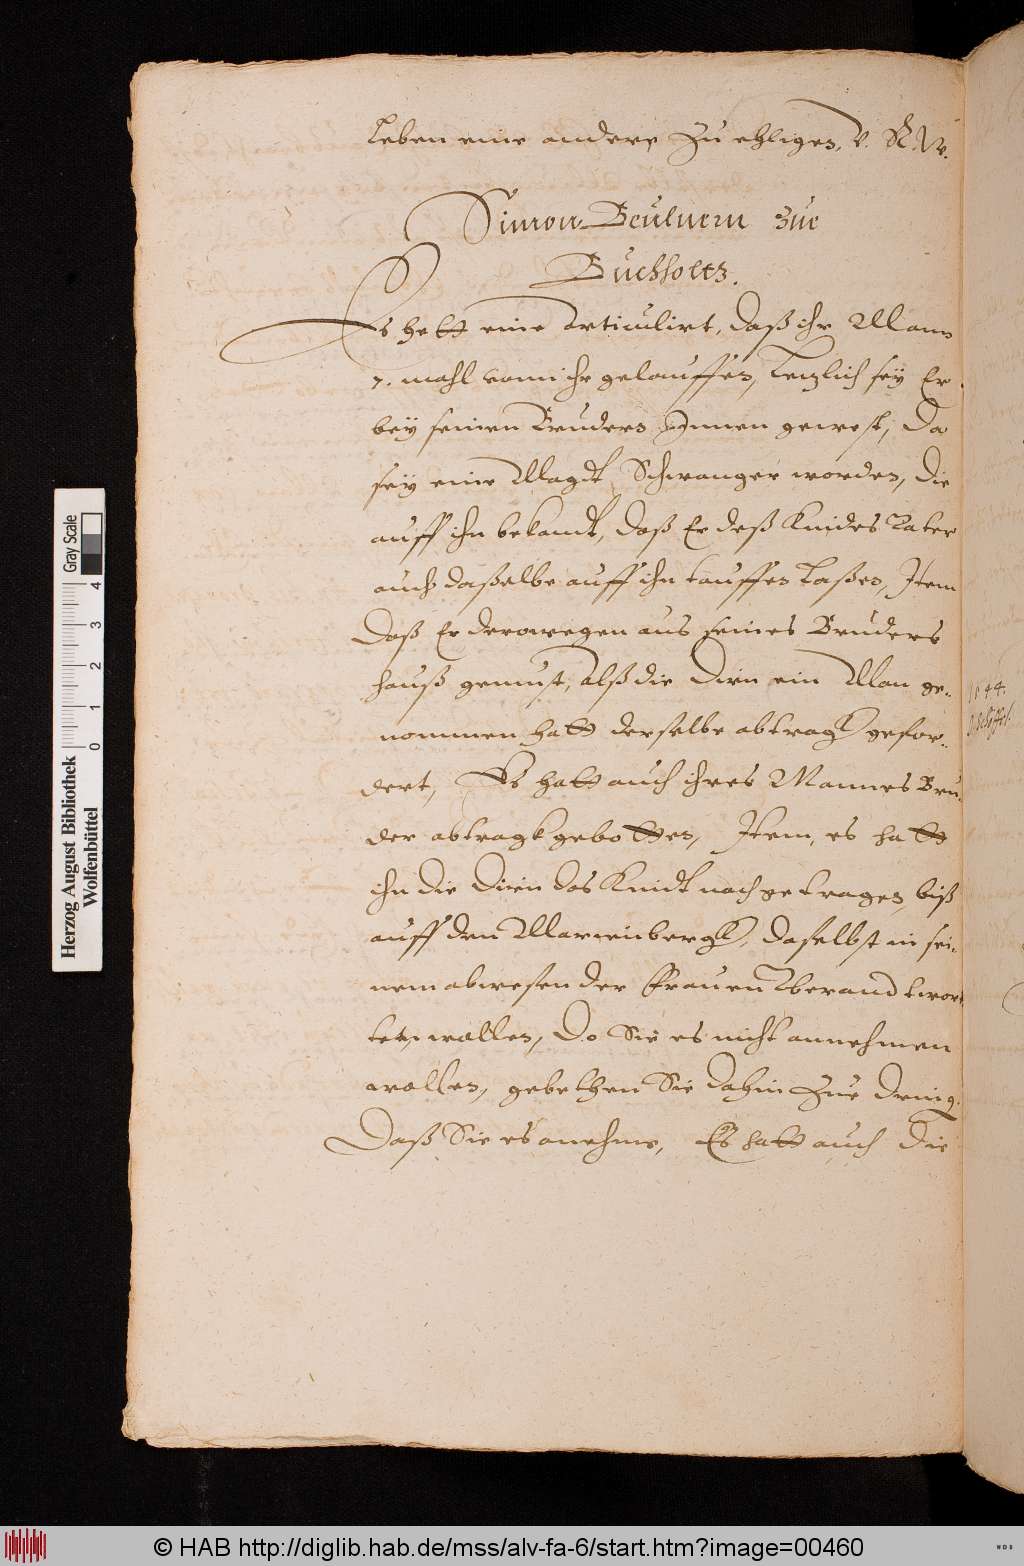 Leben eine andere zu ehligen, V. R. W.
Simon Beutnern zue
Buchholtz.
Es hett eine Articulirt, daß ihr Mann
7. mahl vom ihr gelauffen, Letzlich sey Er
bey seinen Bruders Innen gewest, Da
sey eine Magdt Schwanger worden, die
auff ihn bekandt, daß Er deß Kindes Vater
auch daßelbe auff ihn tauffen Laßen, Item
Daß Er derowegen aus seines Bruders
hauß gemust, Alß die Dirn ein Man ge-
nommen hatt derselbe abtragk gefor-
dert, Es hatt auch ihres Mannes Bru-
der abtragk gebotten, Item, es hatt
ihn die Dirn das Kindt nachgetragen, biß
auff den Marienbergk, daselbst in sei-
nem abwesen der Frauen Uberandtwor-
ten wollen, Do Sie es nicht annehmen
wollen, gebethen Sie dahin zue
Daß Sie es anehme, Es hatt auch die
1544.
Herzog August Bibliothek
Wolfenbüttel
Gray Scale
0 1 2 3 4
© HAB http://diglib.hab.de/mss/alv-fa-6/start.htm?image=00460